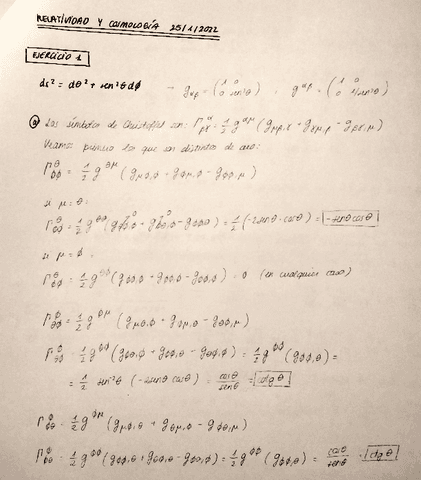 RELATIVIDAD Y COSMOLOGÍA 25/1/2022
EJERCICIO 1
ds² = dθ² + sen²θ dϕ → g_αβ = (1 0 / 0 sen²θ) , g^αβ = (1 0 / 0 1/sen²θ)
ⓐ Los símbolos de Christoffel son: Γ^α_βγ = 1/2 g^αμ (g_μβ,γ + g_γμ,β - g_βγ,μ)
Veamos primero los que son distintos de cero:
Γ^θ_ϕϕ = 1/2 g^θμ (g_μϕ,ϕ + g_ϕμ,ϕ - g_ϕϕ,μ)
si μ = θ:
Γ^θ_ϕϕ = 1/2 g^θθ (g_θϕ,ϕ + g_ϕθ,ϕ - g_ϕϕ,θ) = 1/2 (-2senθ·cosθ) = -senθcosθ
si μ = ϕ:
= 0 (en cualquier caso)
= 1/2 g^ϕμ
= 1/2 g^ϕϕ (g_ϕϕ,θ) =
= 1/2 sen²θ (-2senθ cosθ) = cosθ/senθ = cotgθ
Γ^ϕ_ϕθ = 1/2 g^ϕμ (g_μϕ,θ + g_θμ,ϕ - g_ϕθ,μ)
Γ^ϕ_ϕθ = 1/2 g^ϕϕ (g_ϕϕ,θ + g_θϕ,ϕ - g_ϕθ,ϕ) = 1/2 g^ϕϕ (g_ϕϕ,θ) = cosθ/senθ = cotgθ